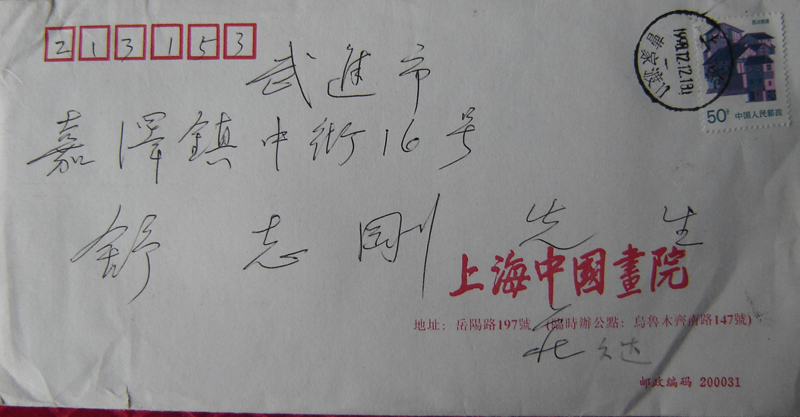 213153
武進市
嘉澤鎮中街16号
舒志剛 先生
上海中國畫院
地址：岳陽路197號 (臨時辦公點：烏魯木齊南路147號)
邮政编码 200031
1998.12.12.18
曹家渡
50分 中国人民邮政